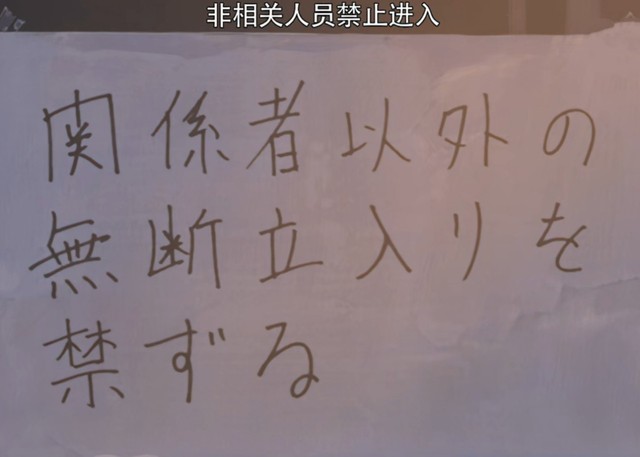 非相关人员禁止进入
関係者以外の
無断立入りを
禁ずる